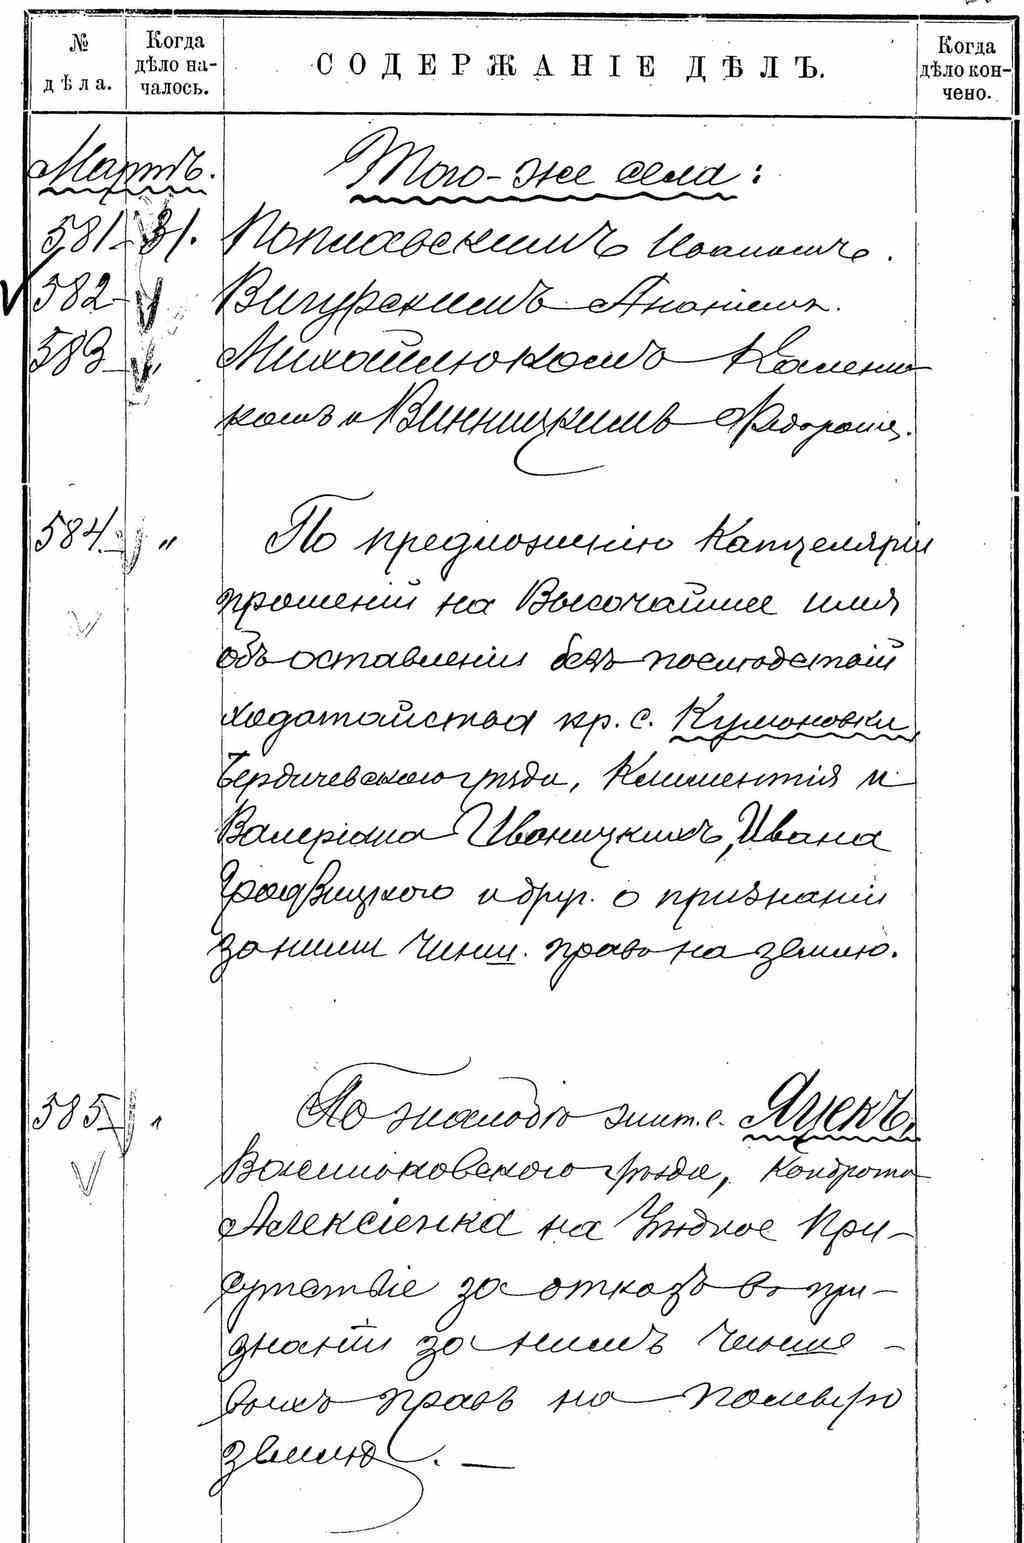 № дѣла. Когда дѣло началось. СОДЕРЖАНІЕ ДѢЛЪ. Когда дѣло кончено.
Мартъ. Того-же села:
581 31. Поплавскимъ Иваномъ.
582 " Вигурскимъ Ананіемъ.
583 " Михайлюкомъ Калени-
комъ и Винницкимъ Федоромъ.
584. " По предложенію Канцеляріи
прошеній на Высочайшее имя
объ оставленіи безъ послѣдствій
ходатайства кр. с. Кумановки,
Бердичевского уѣзда, Климентія и
Валеріана Иваницкихъ, Ивана
и друг. о признаніи
за ними чинш. право на землю.
585 " По жалобѣ жит. с. Яцекъ,
Васильковского уѣзда, Кондрата
Алексіенка на Уѣздное При-
сутствіе за отказъ въ при-
знаніи за нимъ чинше-
выхъ правъ на полевую
землю. —